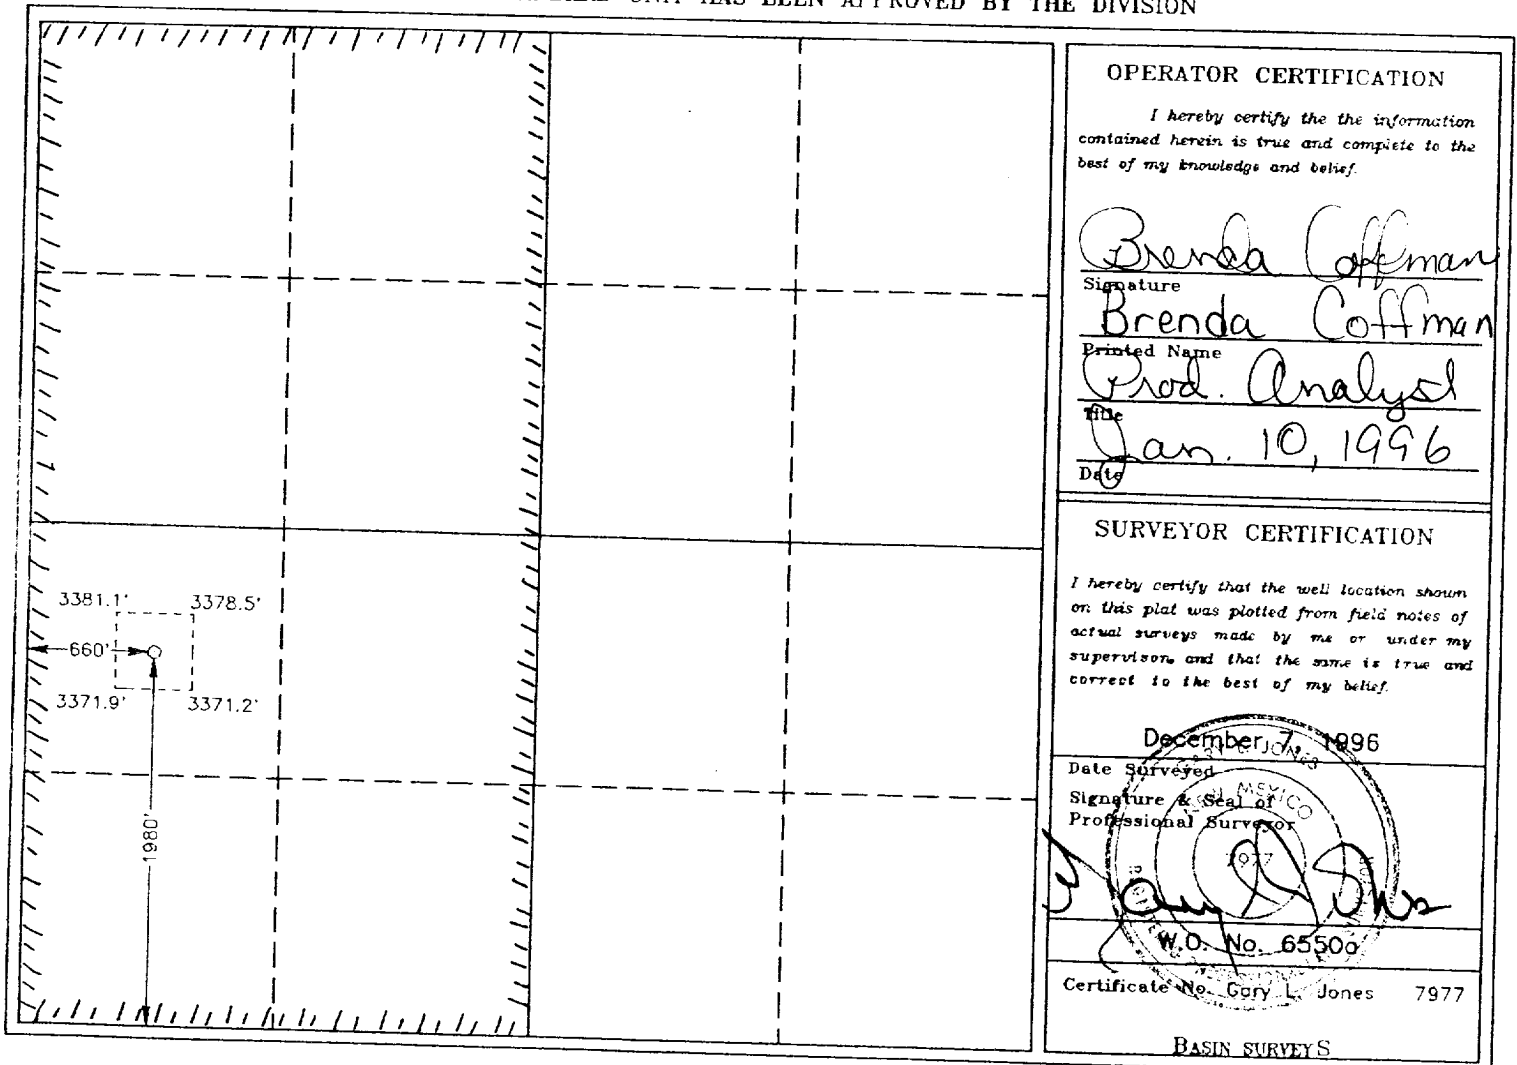 UNIT HAS BEEN APPROVED BY THE DIVISION
OPERATOR CERTIFICATION
I hereby certify the the information
contained herein is true and complete to the
best of my knowledge and belief.
Brenda Coffman
Signature
Brenda Coffman
Printed Name
Prod. Analyst
Title
Jan. 10, 1996
Date
SURVEYOR CERTIFICATION
I hereby certify that the well location shown
on this plat was plotted from field notes of
actual surveys made by me or under my
supervison, and that the same is true and
correct to the best of my belief.
December 7, 1996
Date Surveyed
Signature & Seal of
Professional Surveyor
GARY L. JONES
NEW MEXICO
7977
W.O. No. 6550a
Certificate No. Gary L. Jones 7977
BASIN SURVEYS
3381.1' 3378.5'
660'
3371.9' 3371.2'
1980'